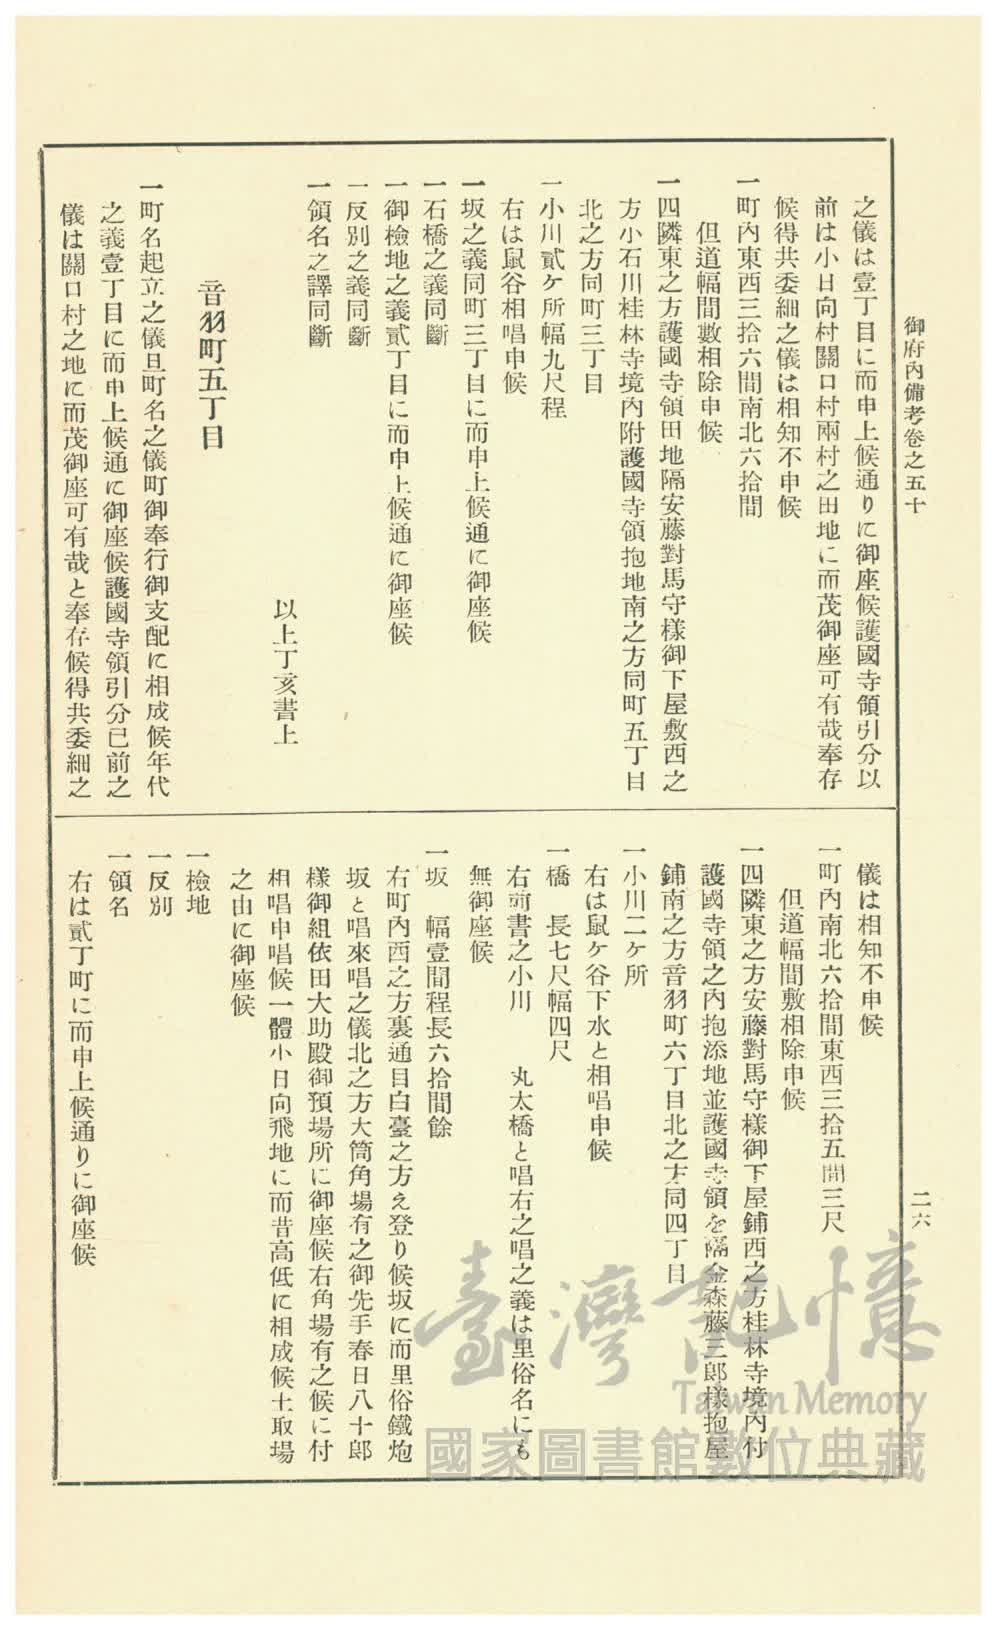 御府內備考卷之五十
二六
之儀は壹丁目に而申上候通りに御座候護國寺領引分以
前は小日向村關口村兩村之田地に而茂御座可有哉奉存
候得共委細之儀は相知不申候
一町內東西三拾六間南北六拾間
但道幅間數相除申候
一四隣東之方護國寺領田地隔安藤對馬守樣御下屋敷西之
方小石川桂林寺境內附護國寺領抱地南之方同町五丁目
北之方同町三丁目
一小川貳ケ所幅九尺程
右は鼠谷相唱申候
一坂之義同町三丁目に而申上候通に御座候
一石橋之義同斷
一御檢地之義貳丁目に而申上候通に御座候
一反別之義同斷
一領名之譯同斷
以上丁亥書上
音羽町五丁目
一町名起立之儀且町名之儀町御奉行御支配に相成候年代
之義壹丁目に而申上候通に御座候護國寺領引分已前之
儀は關口村之地に而茂御座可有哉と奉存候得共委細之
儀は相知不申候
一町內南北六拾間東西三拾五間三尺
但道幅間敷相除申候
一四隣東之方安藤對馬守樣御下屋鋪西之方桂林寺境內付
護國寺領之內抱添地並護國寺領を隔金森藤三郎樣抱屋
鋪南之方音羽町六丁目北之方同四丁目
一小川二ケ所
右は鼠ケ谷下水と相唱申候
一橋 長七尺幅四尺
右前書之小川 丸太橋と唱右之唱之義は里俗名にも
無御座候
一坂 幅壹間程長六拾間餘
右町內西之方裏通目白臺之方え登り候坂に而里俗鐵炮
坂と唱來唱之儀北之方大筒角場有之御先手春日八十郎
樣御組依田大助殿御預場所に御座候右角場有之候に付
相唱申唱候一體小日向飛地に而昔高低に相成候土取場
之由に御座候
一檢地
一反別
一領名
右は貳丁町に而申上候通りに御座候
臺灣記憶
Taiwan Memory
國家圖書館數位典藏